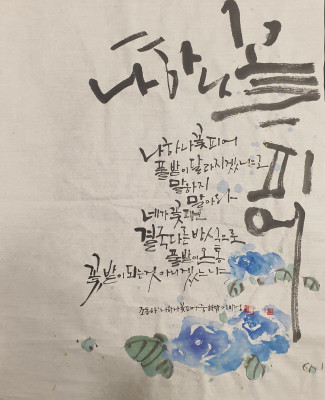 나하나꽃
피어
나하나꽃피어
풀밭이달라지겠느냐고
말하지
말아라
네가꽃피면
결국다른방식으로
풀밭이온통
꽃밭이되는것아니겠느냐
조동화'나하나꽃피어'중